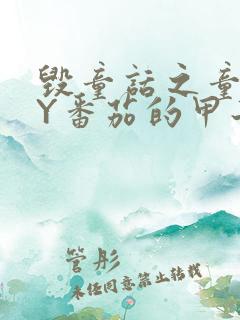 毁童话之童
Y番茄的甲
管彤
未经同意禁止转载